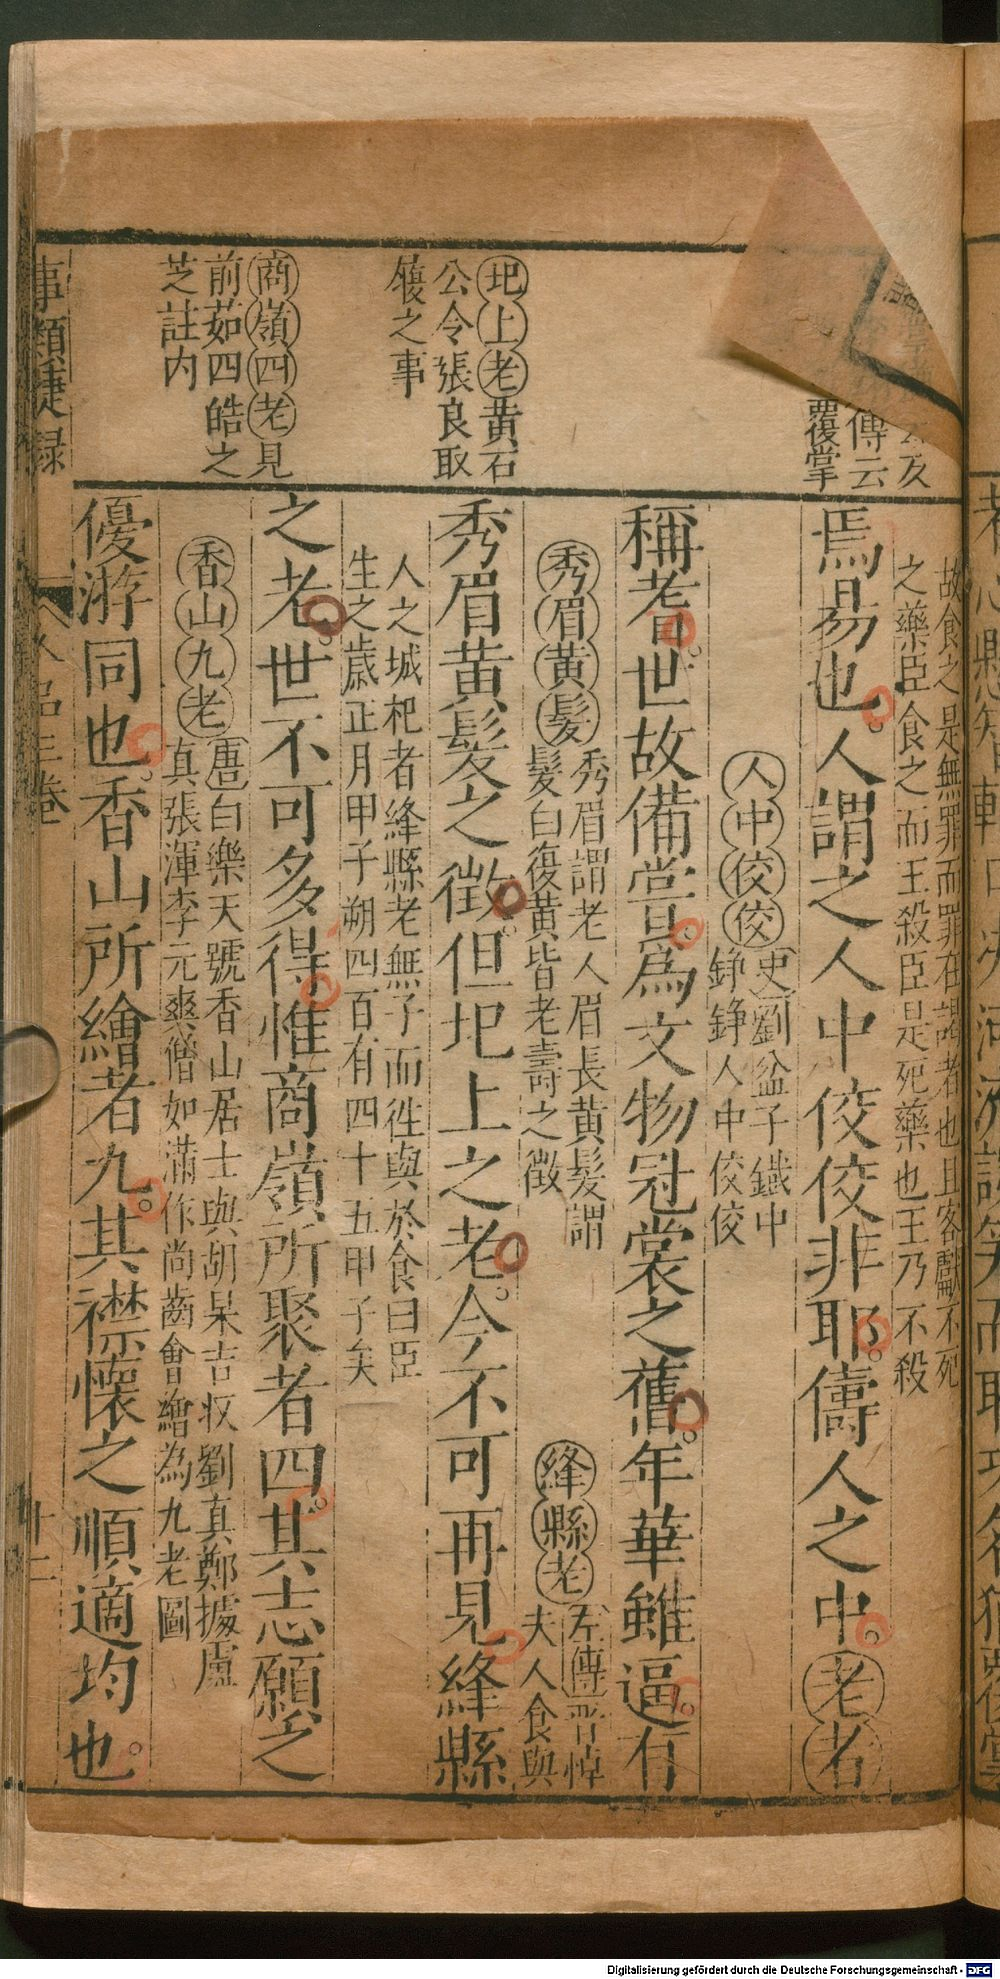 傳云
覆掌
圯上老黄石
公令張良取
履之事
商嶺四老見
前茹四皓之
芝註内
故食之是無罪而罪在謁者也且客獻不死
之藥臣食之而王殺臣是死藥也王乃不殺
焉易也人謂之人中佼佼非耶儔人之中老者
人中佼佼史劉盆子鐵中
錚錚人中佼佼
稱耆世故備嘗爲文物冠裳之舊年華雖逼有
秀眉黃髮秀眉謂老人眉長黃髮謂
髮白復黄皆老壽之徵
絳縣老左傳晉悼
夫人食與
秀眉黄髮之徵但圯上之老今不可再見絳縣
人之城杞者絳縣老無子而徃與於食曰臣
生之歲正月甲子朔四百有四十五甲子矣
之老世不可多得惟商嶺所聚者四其志願之
香山九老唐白樂天號香山居士與胡杲吉旼劉真鄭據盧
真張渾李元爽僧如滿作尚齒會繪為九老圖
優游同也香山所繪者九其襟懷之順適均也
事類捷録
人品三卷
十二
Digitalisierung gefördert durch die Deutsche Forschungsgemeinschaft - DFG